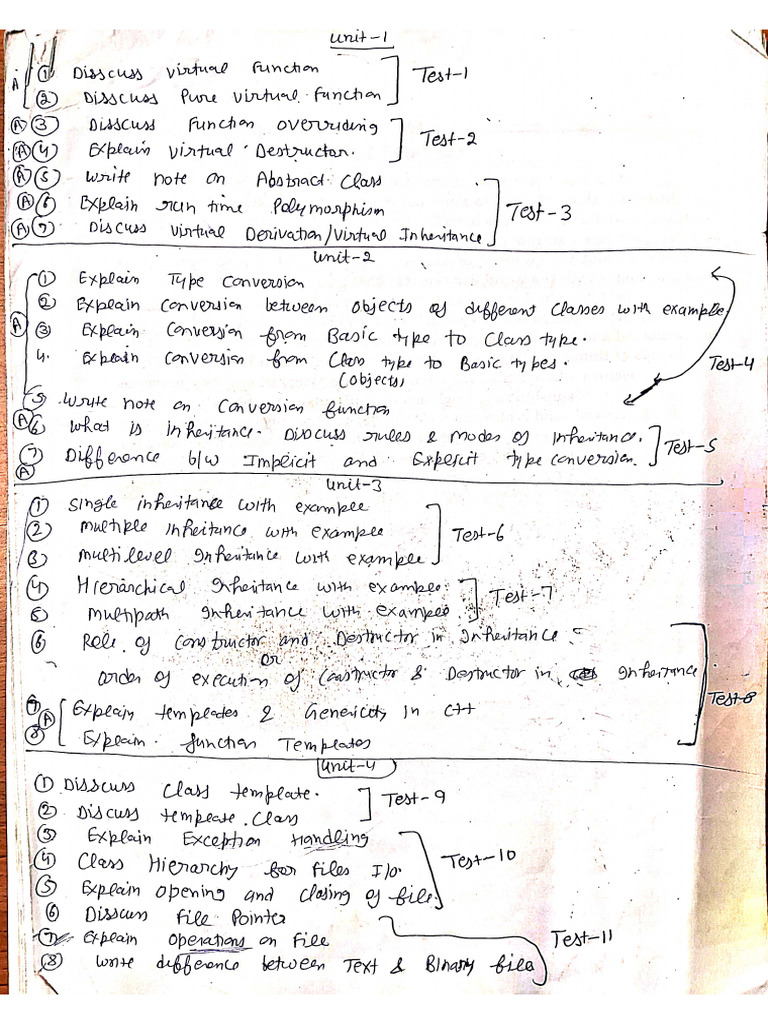 Unit-1
A ① Disscuss Virtual Function
② Disscuss Pure Virtual Function Test-1
Ⓐ ③ Disscuss Function Overriding
Ⓐ ④ Explain Virtual Destructor. Test-2
Ⓐ ⑤ Write note on Abstract Class
Ⓐ ⑥ Explain run time Polymorphism Test-3
Ⓐ ⑦ Discuss Virtual Derivation/Virtual Inheritance
Unit-2
① Explain Type Conversion
② Explain Conversion between objects of different Classes with example.
Ⓐ ③ Explain Conversion from Basic type to Class type.
4. Explain Conversion from Class type to Basic types. Test-4
(objects)
5 Write note on Conversion function
Ⓐ 6 What is inheritance. Discuss rules & modes of inheritance.
⑦ Difference b/w Implicit and Explicit type conversion. Test-5
Ⓐ
Unit-3
① Single inheritance with example
② Multiple inheritance with example Test-6
③ Multilevel Inheritance with example
④ Hierarchical Inheritance with example
⑤ Multipath Inheritance with example Test-7
⑥ Role of Constructor and Destructor in Inheritance
or
order of execution of Constructor & Destructor in Inheritance
⑦ Ⓐ Explain templates & Genericity in C++ Test-8
⑧ Explain function Templates
Unit-4
① Disscuss Class template.
② Discuss template Class Test-9
③ Explain Exception Handling
④ Class Hierarchy for Files I/o. Test-10
⑤ Explain opening and closing of file.
⑥ Disscuss File Pointer
⑦ Explain Operations on File Test-11
⑧ Write difference between Text & Binary file